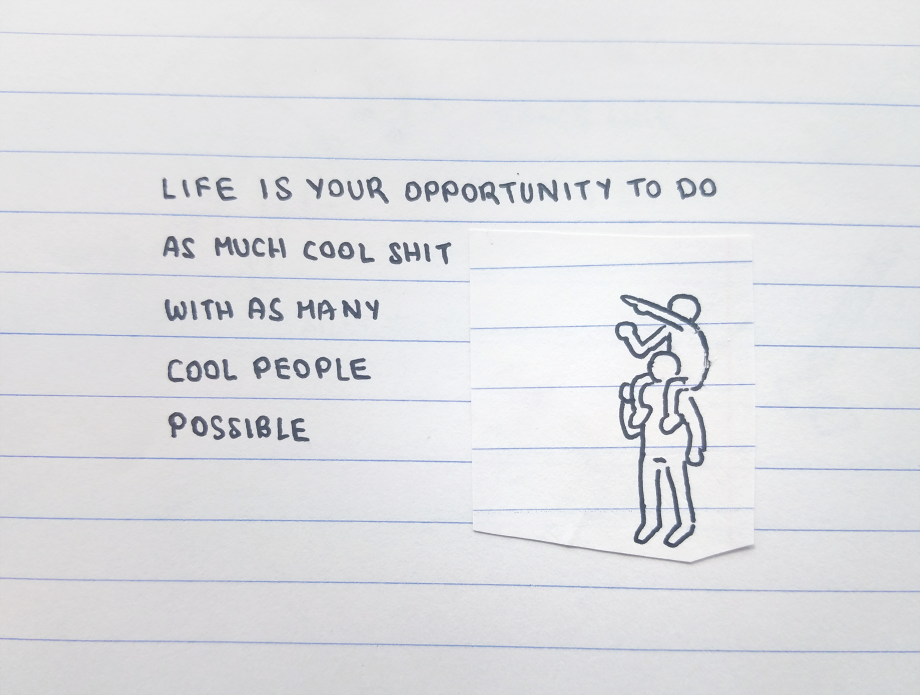 LIFE IS YOUR OPPORTUNITY TO DO
AS MUCH COOL SHIT
WITH AS MANY
COOL PEOPLE
POSSIBLE